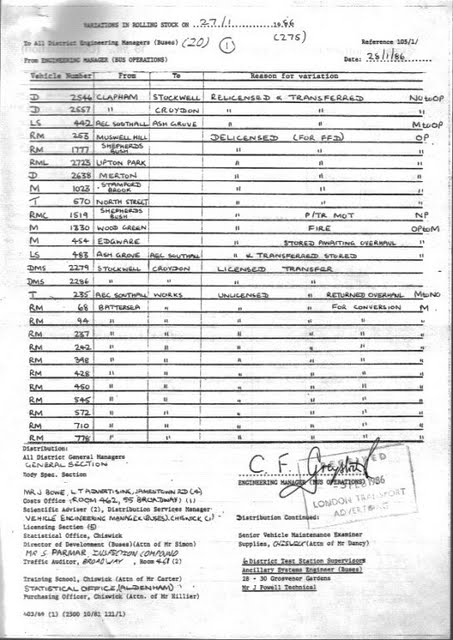 VARIATIONS IN ROLLING STOCK ON 27/1 1986
To All District Engineering Managers (Buses) (20) (1) (275) Reference 105/1/
From ENGINEERING MANAGER (BUS OPERATIONS) Date: 28/1/86
Vehicle Number From To Reason for variation
D 2546 CLAPHAM STOCKWELL RELICENSED & TRANSFERRED NU to OP
D 2557 " CROYDON " " "
LS 442 AEC SOUTHALL ASH GROVE " " M to OP
RM 253 MUSWELL HILL DELICENSED (FOR FFD) OP
RM 1777 SHEPHERDS BUSH " " "
RML 2723 UPTON PARK " " "
D 2638 MERTON " " "
M 1023 STAMFORD BROOK " " "
T 670 NORTH STREET " " "
RMC 1519 SHEPHERDS BUSH " P/TR MOT NP
M 1330 WOOD GREEN " FIRE OP to M
M 454 EDGWARE " STORED AWAITING OVERHAUL "
LS 483 ASH GROVE AEC SOUTHALL " & TRANSFERRED STORED "
DMS 2279 STOCKWELL CROYDON LICENSED TRANSFER
DMS 2286 " " " "
T 235 AEC SOUTHALL WORKS UNLICENSED " RETURNED OVERHAUL M to NO
RM 68 BATTERSEA " " " FOR CONVERSION M
RM 94 " " " " " "
RM 237 " " " " " "
RM 242 " " " " " "
RM 398 " " " " " "
RM 428 " " " " " "
RM 450 " " " " " "
RM 545 " " " " " "
RM 572 " " " " " "
RM 710 " " " " " "
RM 778 " " " " " "
Distribution:
All District General Managers
GENERAL SECTION
Body Spec. Section
ENGINEERING MANAGER (BUS OPERATIONS)
1986
LONDON TRANSPORT
ADVERTISING
MR J BOWE, L T ADVERTISING, JAMESTOWN RD (4)
Costs Office (ROOM 462, 55 BROADWAY) (1)
Scientific Adviser (2), Distribution Services Manager
VEHICLE ENGINEERING MANAGER (BUSES) CHISWICK (1)
Licensing Section (5)
Statistical Office, Chiswick
Director of Development (Buses)(Attn of Mr Simon)
MR S. PARMAR INSPECTION COMPOUND
Traffic Auditor, BROADWAY, Room 451 (2)
Training School, Chiswick (Attn of Mr Carter)
STATISTICAL OFFICE (ALDENHAM)
Purchasing Officer, Chiswick (Attn. of Mr Hillier)
Distribution Continued:
Senior Vehicle Maintenance Examiner
Supplies, CHISWICK (Attn of Mr Dancy)
6 District Test Station Supervisors
Ancillary Systems Engineer (Buses)
28 - 30 Grosvenor Gardens
Mr J Powell Technical
403/69 (1) (2500 10/82 121/1)